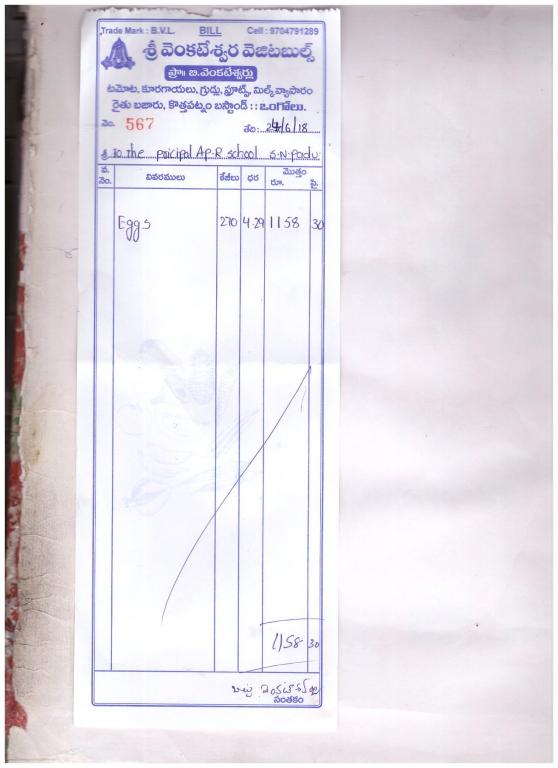 Trade Mark : B.V.L. BILL Cell : 9704791289
శ్రీ వెంకటేశ్వర వెజిటబుల్స్
ప్రొ॥ బి.వెంకటేశ్వర్లు
టమోట, కూరగాయలు, గ్రుడ్లు, ఫ్రూట్స్, మిల్క్ వ్యాపారం
రైతు బజారు, కొత్తపట్నం బస్టాండ్ :: ఒంగోలు.
నెం. 567 తేది: 24/6/18
శ్రీ To the pricipal A.P.R school S.N.padu
వ. నెం. వివరములు కేజీలు ధర మొత్తం రూ. పై.
Eggs 270 4.29 1158 30
1158 30
సంతకం